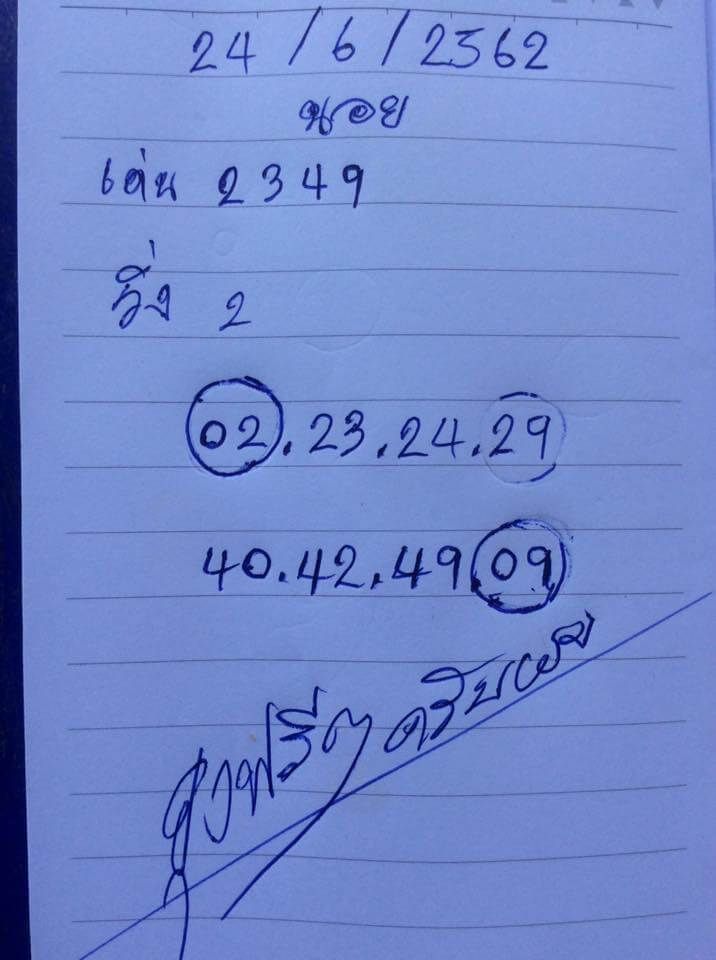 24 / 6 / 2562
นอย
เด่น 2 3 4 9
วิ่ง 2
02.23.24.29
40.42.49.09
ฟรีๆ ครับ